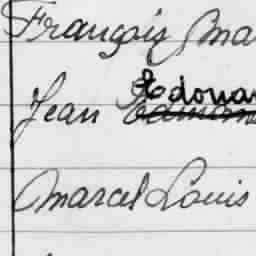 François Ma
Jean Edoua
Marcel Louis